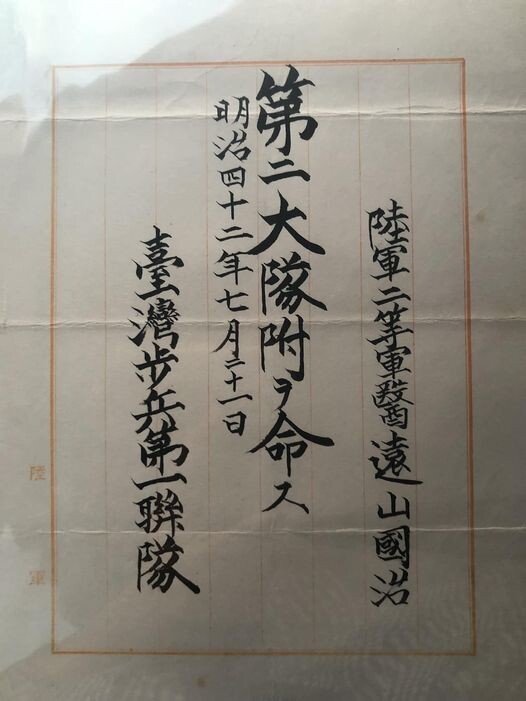 陸軍二等軍醫遠山國治
第二大隊附ヲ命ス
明治四十二年七月二十一日
臺灣步兵第一聯隊
陸軍